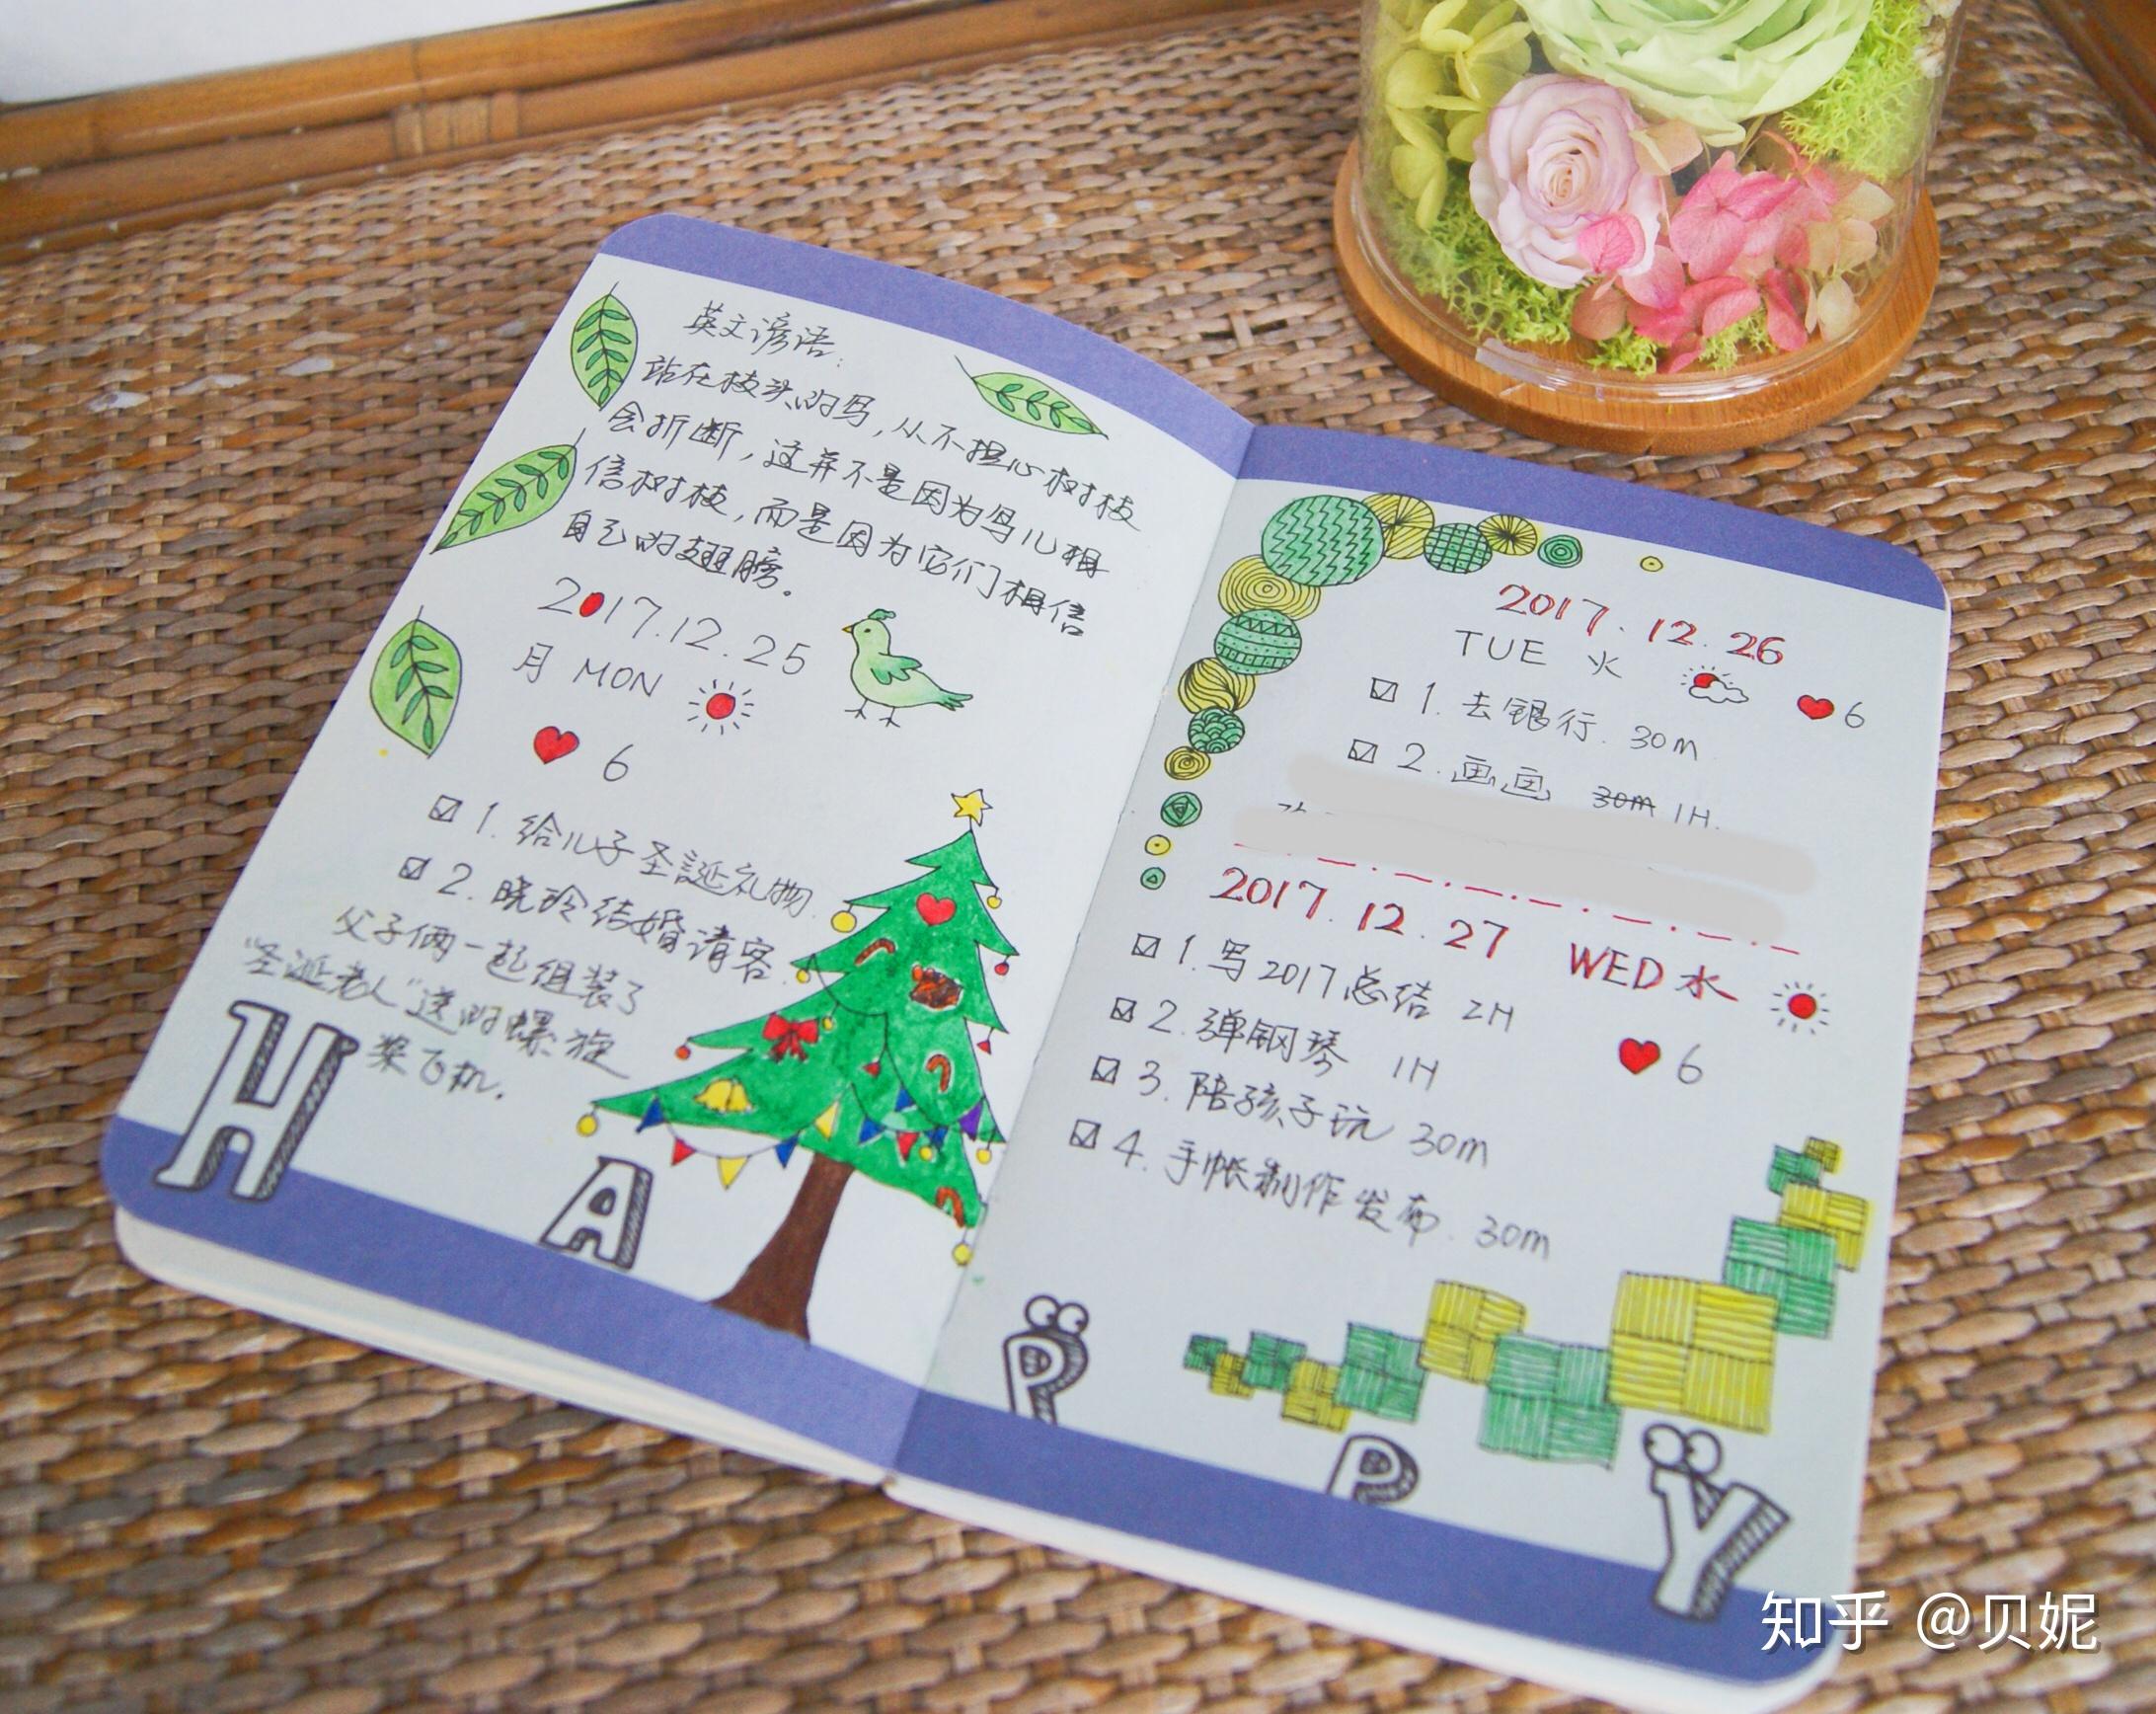 英文谚语:
站在枝头的鸟,从不担心树枝
会折断,这并不是因为鸟儿相
信树枝,而是因为它们相信
自己的翅膀。
2017.12.25
月 MON
6
☑ 1. 给儿子圣誕礼物.
☑ 2. 晓玲结婚请客.
父子俩一起组装了
"圣诞老人"送的螺旋
桨飞机.
H
A
2017.12.26
TUE 火
6
☑ 1. 去银行. 30m
☑ 2. 画画 30m 1H.
2017.12.27 WED 水
☑ 1. 写2017总结 2H
☑ 2. 弹钢琴 1H
6
☑ 3. 陪孩子玩 30m
☑ 4. 手帐制作发布. 30m
P
P
Y
知乎 @贝妮